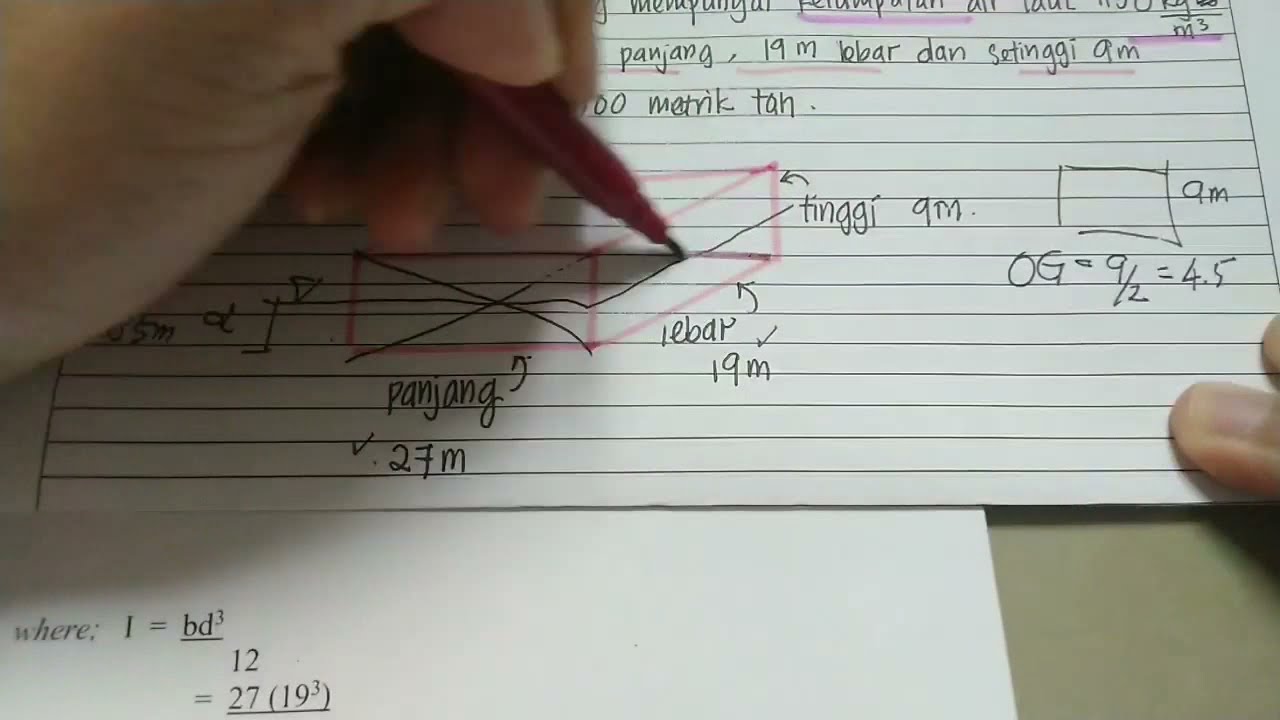 mempunyai ketumpatan air laut kg
m³
panjang, 19 m lebar dan setinggi 9m
00 metrik tan.
tinggi 9m.
9m
OG = 9/2 = 4.5
5m d
lebar ✓
19 m
panjang
✓. 27 m
where; I = bd³
12
= 27 (19³)